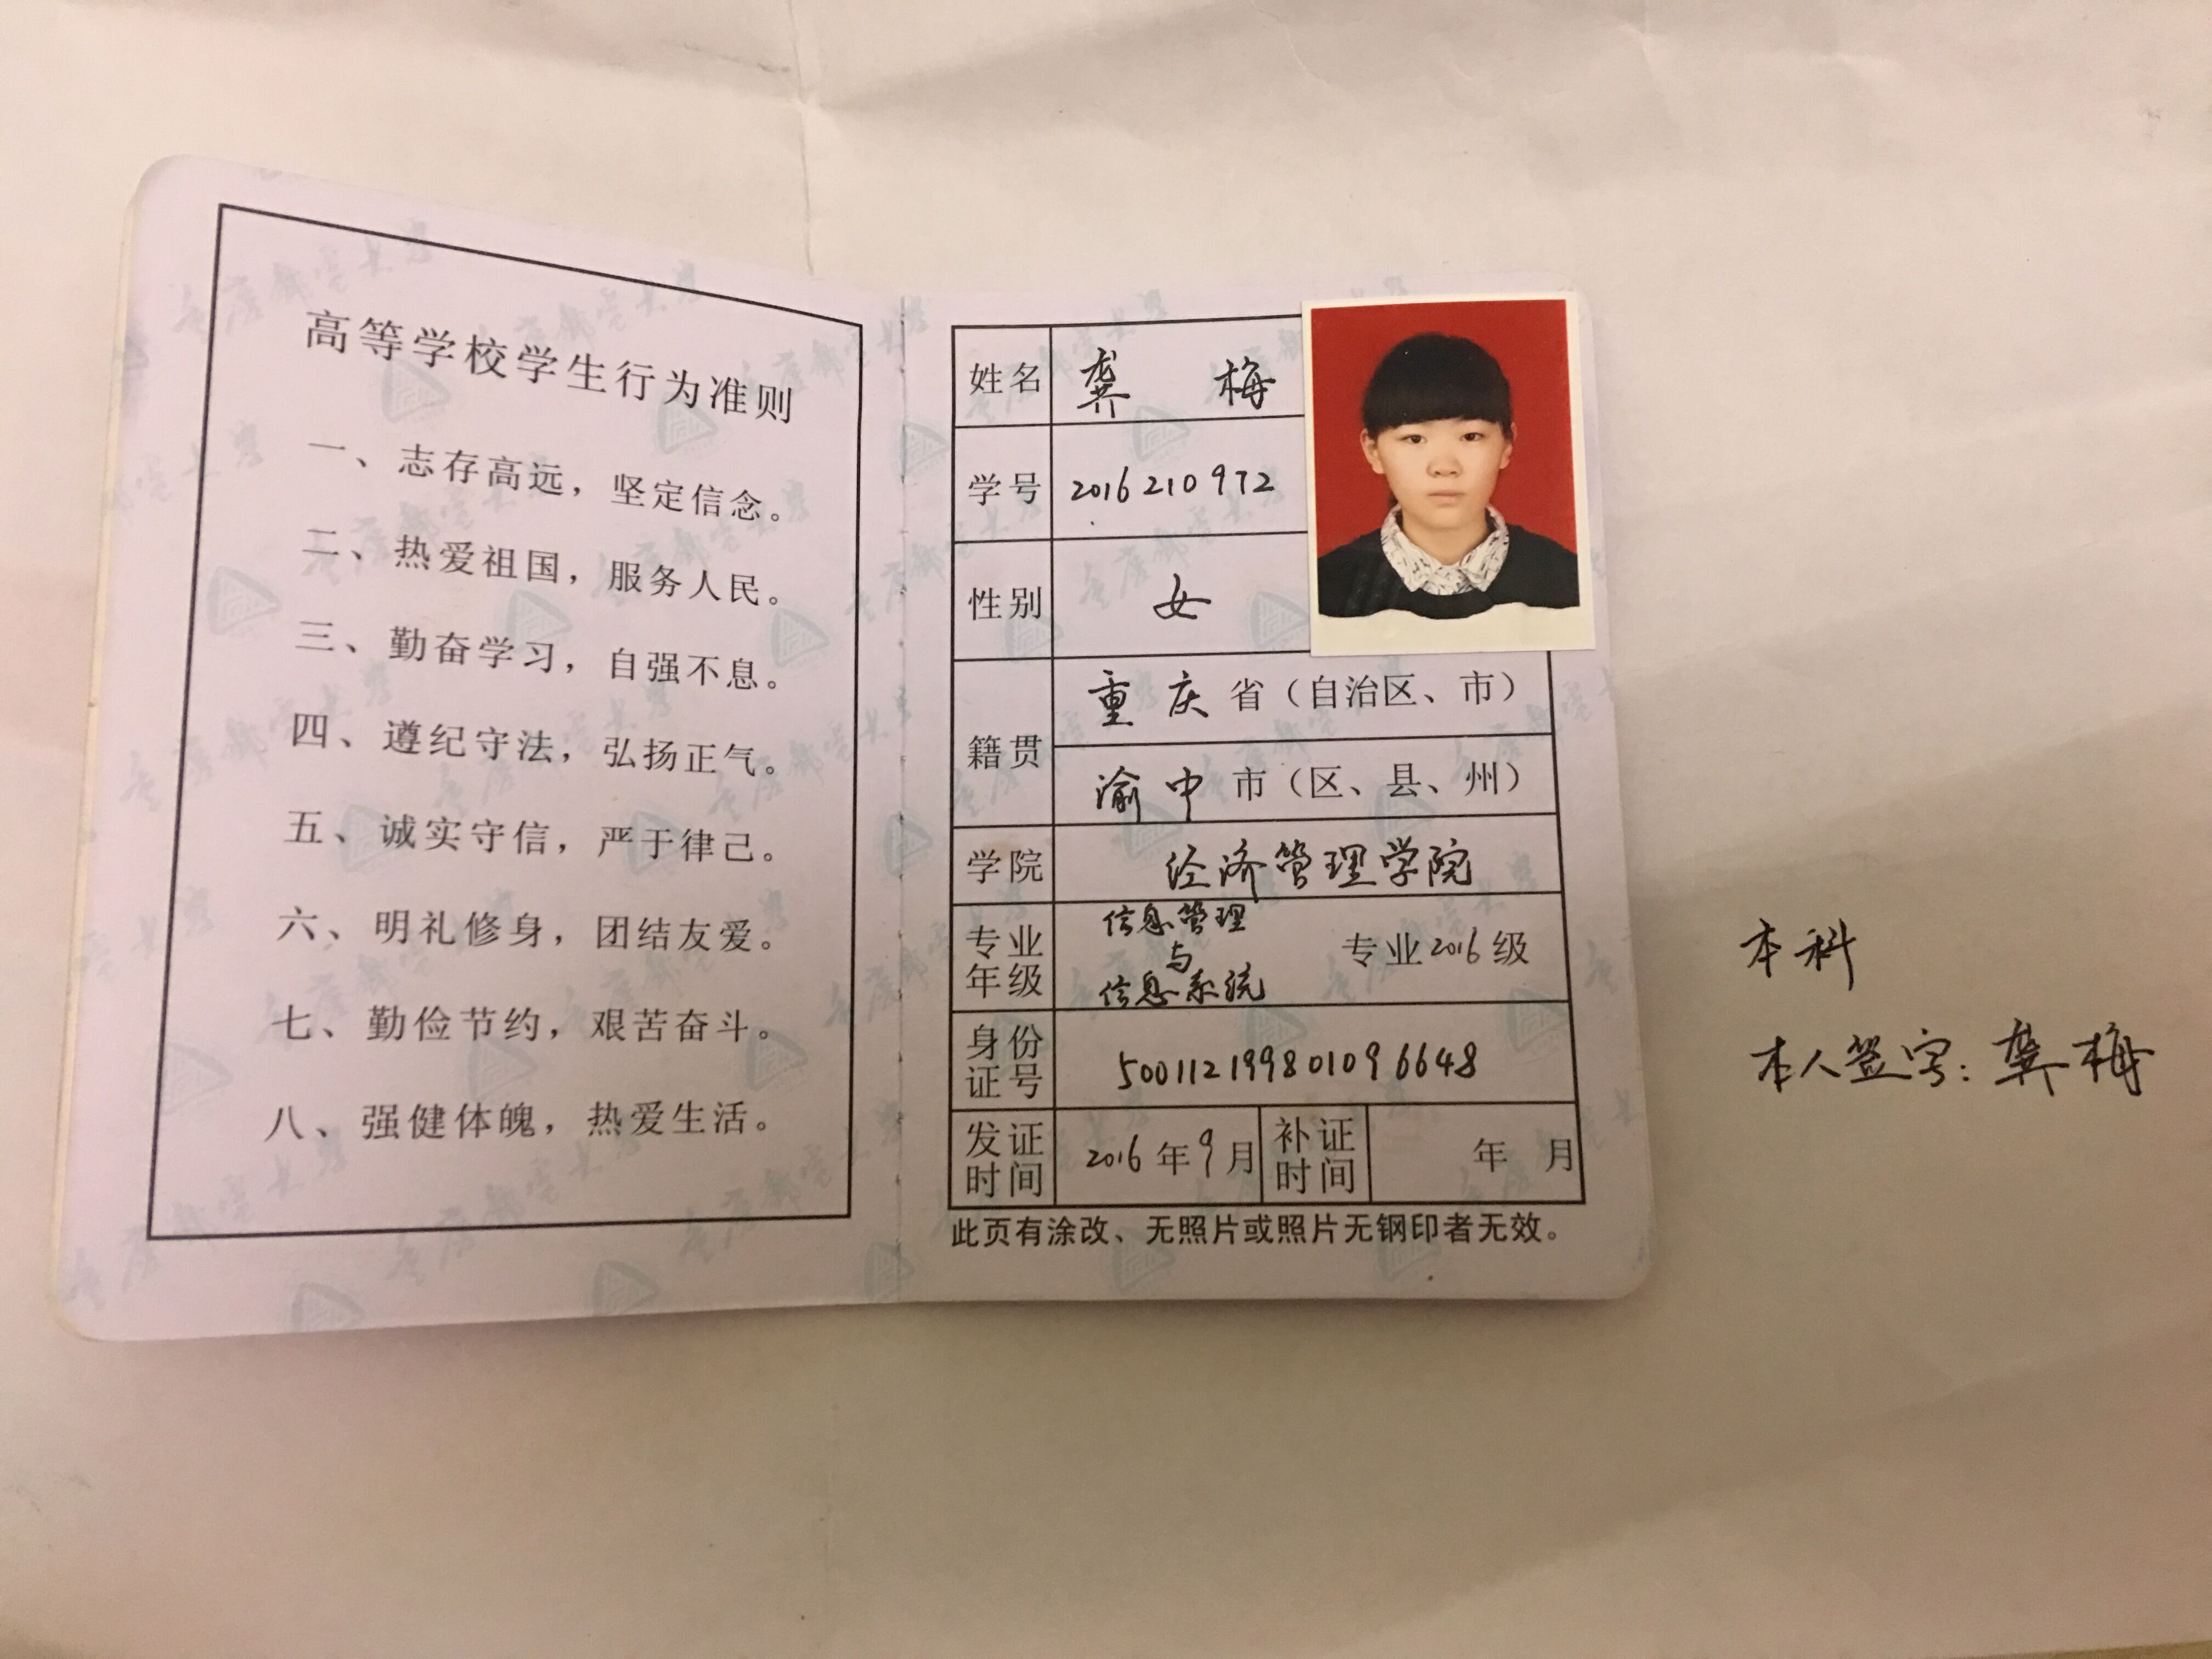 高等学校学生行为准则
一、志存高远，坚定信念。
二、热爱祖国，服务人民。
三、勤奋学习，自强不息。
四、遵纪守法，弘扬正气。
五、诚实守信，严于律己。
六、明礼修身，团结友爱。
七、勤俭节约，艰苦奋斗。
八、强健体魄，热爱生活。
姓名 龚 梅
学号 2016210972
性别 女
籍贯 重庆省（自治区、市）
渝中市（区、县、州）
学院 经济管理学院
专业年级 信息管理与信息系统 专业2016级
身份证号 500112199801096648
发证时间 2016年9月 补证时间 年 月
此页有涂改、无照片或照片无钢印者无效。
本科
本人签字：龚梅